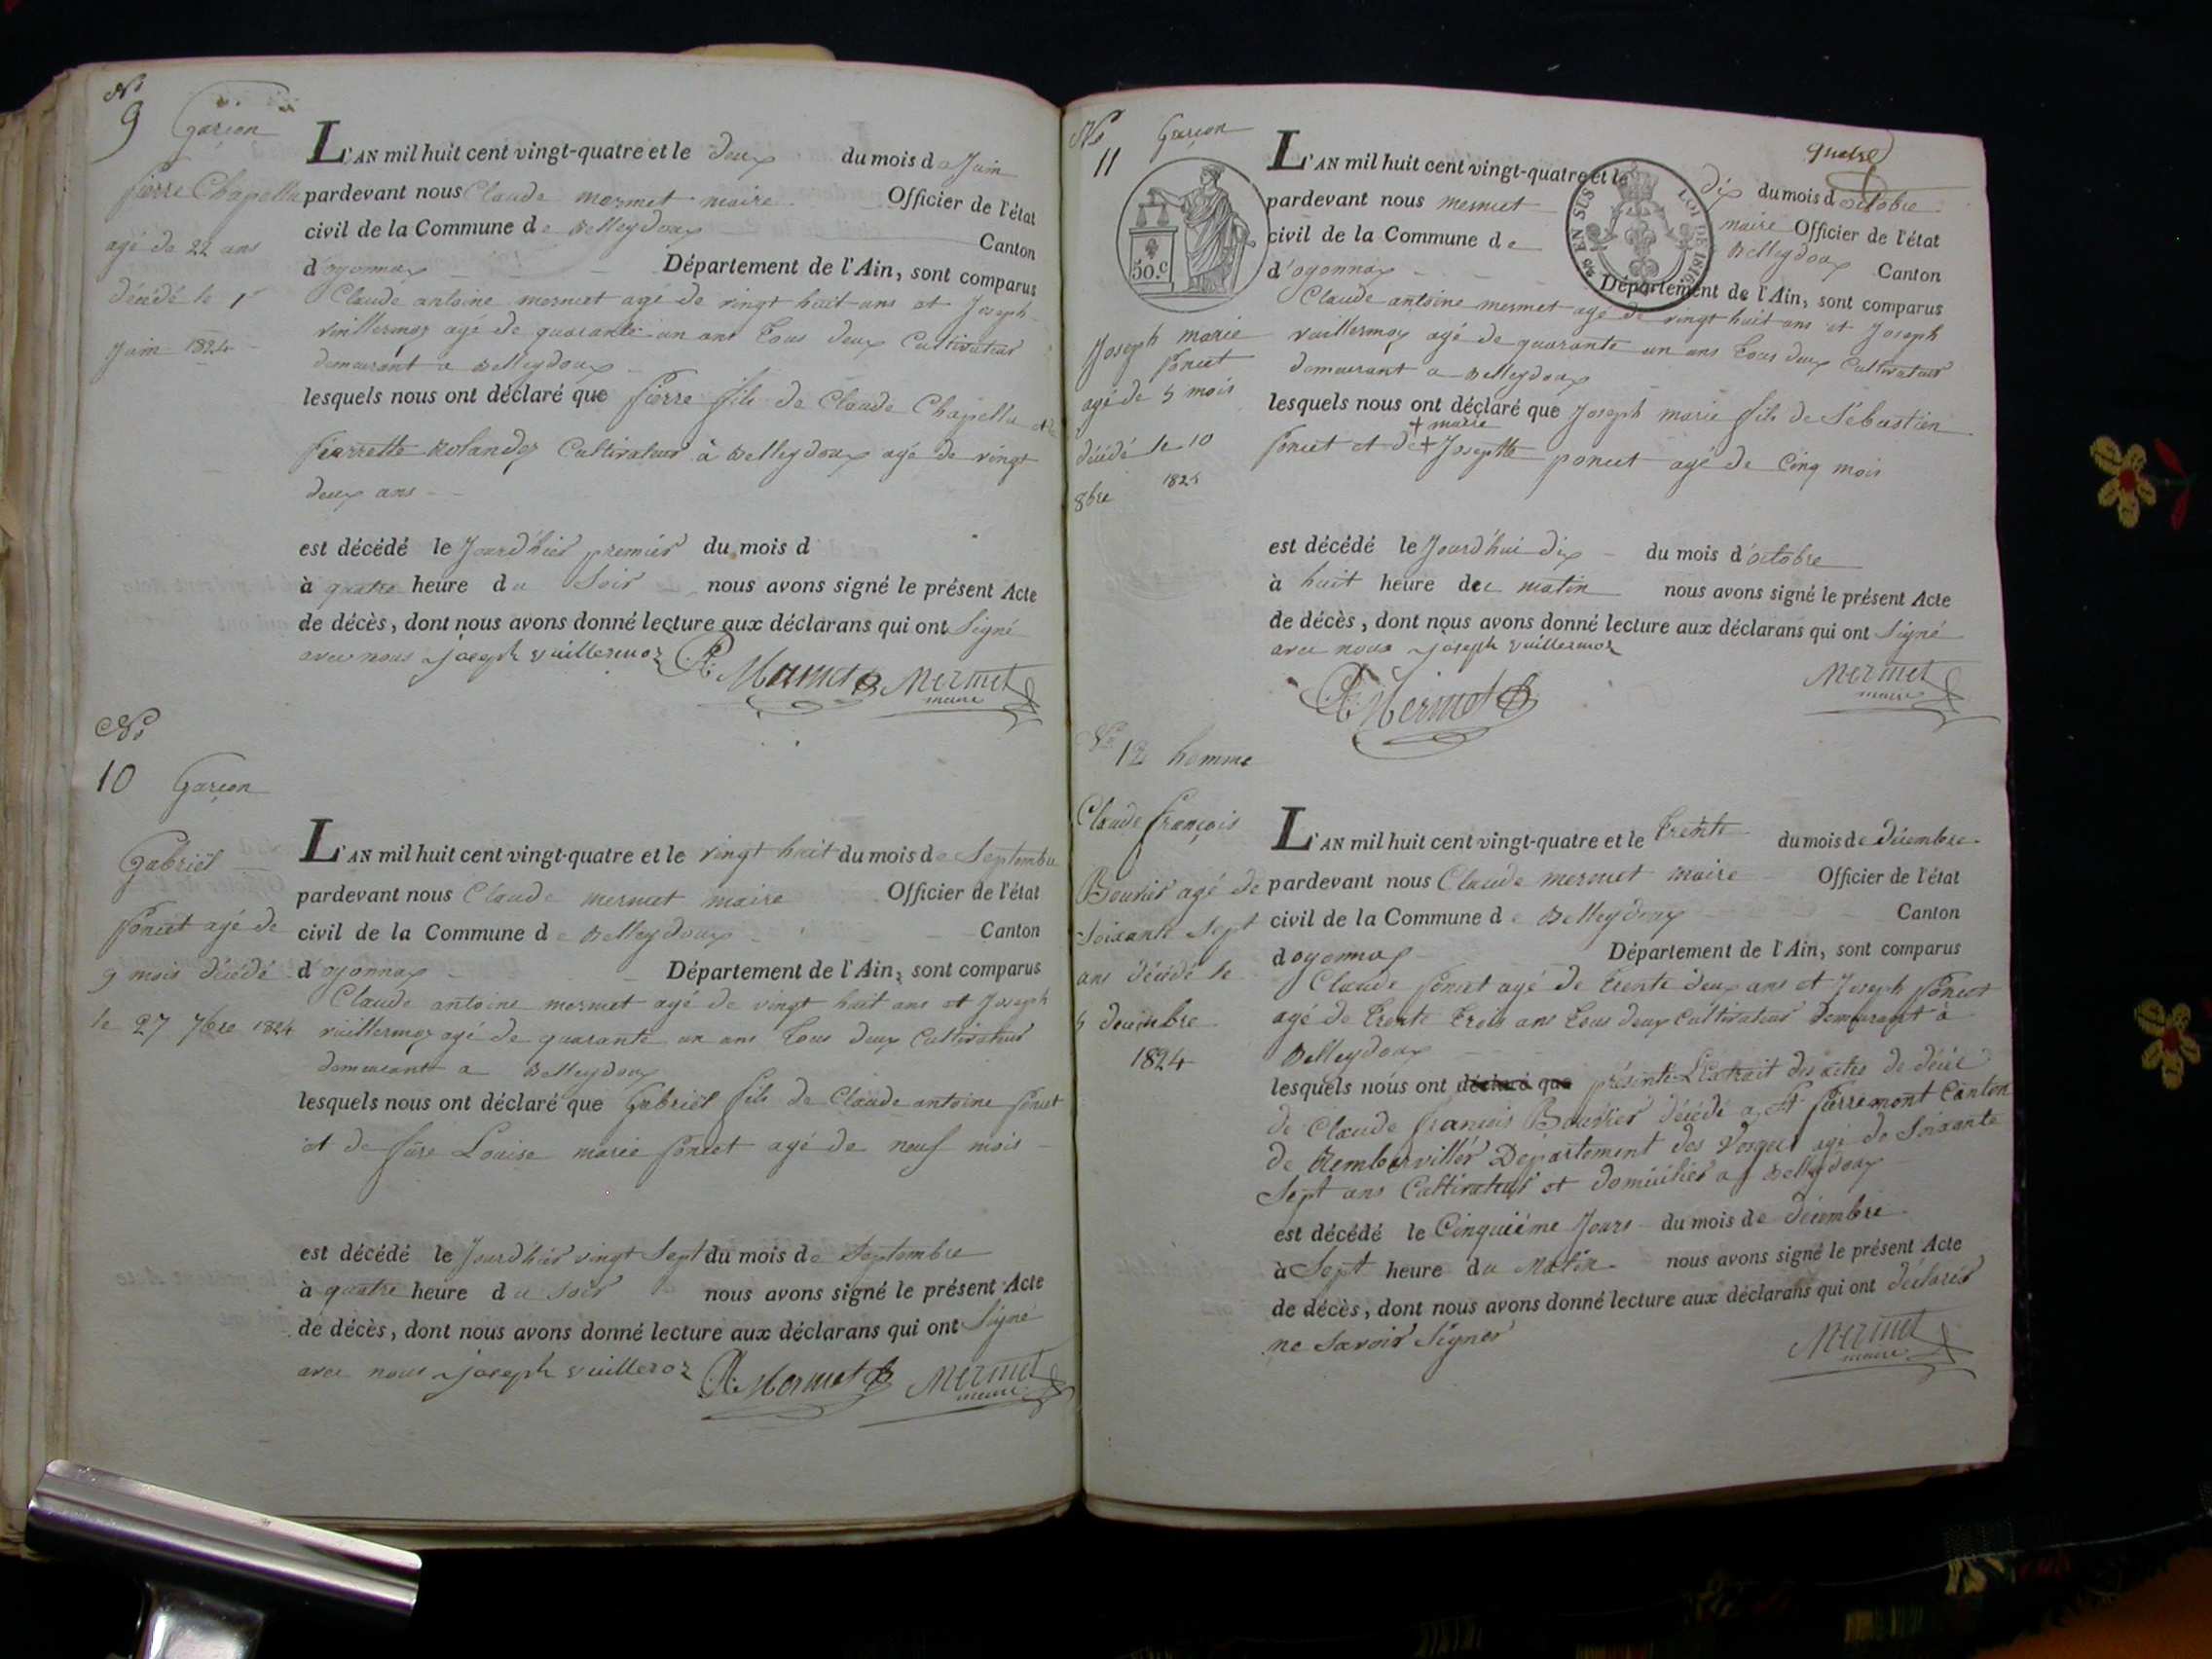 No
9 Garçon
Pierre Chapellu
agé de 22 ans
décédé le 1r
Juin 1824
L'AN mil huit cent vingt-quatre et le deux du mois de Juin
pardevant nous Claude mermet maire Officier de l'état
civil de la Commune de Belleydoux Canton
d'oyonnax Département de l'Ain, sont comparus
Claude antoine mermet agé de vingt huit ans et Joseph
vuillermoz agé de quarante un ans tous deux Cultivateur
demeurant a Belleydoux
lesquels nous ont déclaré que Pierre fils de Claude Chapellu et de
Pierrette Rolandez Cultivateur à Belleydoux agé de vingt
deux ans
est décédé le Jourd'hier premier du mois d
à quatre heure du Soir nous avons signé le présent Acte
de décès, dont nous avons donné lecture aux déclarans qui ont Signé
avec nous joseph vuillermoz A Mermet Mermet
maire
No
10 Garçon
Gabriel
Poncet agé de
9 mois décédé
le 27 7bre 1824
L'AN mil huit cent vingt-quatre et le vingt huit du mois de Septembre
pardevant nous Claude mermet maire Officier de l'état
civil de la Commune de Belleydoux Canton
d'oyonnax Département de l'Ain, sont comparus
Claude antoine mermet agé de vingt huit ans et Joseph
vuillermoz agé de quarante un ans tous deux Cultivateur
demeurant a Belleydoux
lesquels nous ont déclaré que Gabriel fils de Claude antoine Poncet
et de Louise marie Poncet agé de neuf mois
est décédé le Jourd'hier vingt Sept du mois de Septembre
à quatre heure du Soir nous avons signé le présent Acte
de décès, dont nous avons donné lecture aux déclarans qui ont Signé
avec nous joseph vuilleroz A. Mermet Mermet
maire
quatre
No
11 Garçon
50.c
EN SUS
LOI DE 1816
Joseph marie
Poncet
agé de 5 mois
décédé le 10
8bre 1824
L'AN mil huit cent vingt-quatre et le dix du mois d octobre
pardevant nous mermet maire Officier de l'état
civil de la Commune de Belleydoux Canton
d'oyonnax Département de l'Ain, sont comparus
Claude antoine mermet agé de vingt huit ans et Joseph
vuillermoz agé de quarante un ans tous deux Cultivateur
demeurant a Belleydoux
lesquels nous ont déclaré que Joseph marie fils de Sébastien
+ marie
Poncet et de + Josephte poncet agé de Cinq mois
est décédé le Jourd'hui dix du mois d'octobre
à huit heure du matin nous avons signé le présent Acte
de décès, dont nous avons donné lecture aux déclarans qui ont Signé
avec nous joseph vuillermoz
A Mermet Mermet
maire
No 12 homme
Claude françois
Bouvier agé de
Soixante Sept
ans décédé le
5 decembre
1824
L'AN mil huit cent vingt-quatre et le trente du mois de décembre
pardevant nous Claude mermet maire Officier de l'état
civil de la Commune de Belleydoux Canton
d oyonnax Département de l'Ain, sont comparus
Claude Poncet agé de trente deux ans et Joseph Poncet
agé de trente trois ans tous deux Cultivateur demeurant à
Belleydoux
lesquels nous ont déclaré que présenté L'Extrait des actes de décès
de Claude françois Bouvier décédé a St Pierremont Canton
de Rembervillér Département des Vosges agé de Soixante
Sept ans Cultivateur et domicilier a Belleydoux
est décédé le Cinquiéme Jours du mois de décembre
à Sept heure du Matin nous avons signé le présent Acte
de décès, dont nous avons donné lecture aux déclarans qui ont déclarés
ne Savoir Signer Mermet
maire